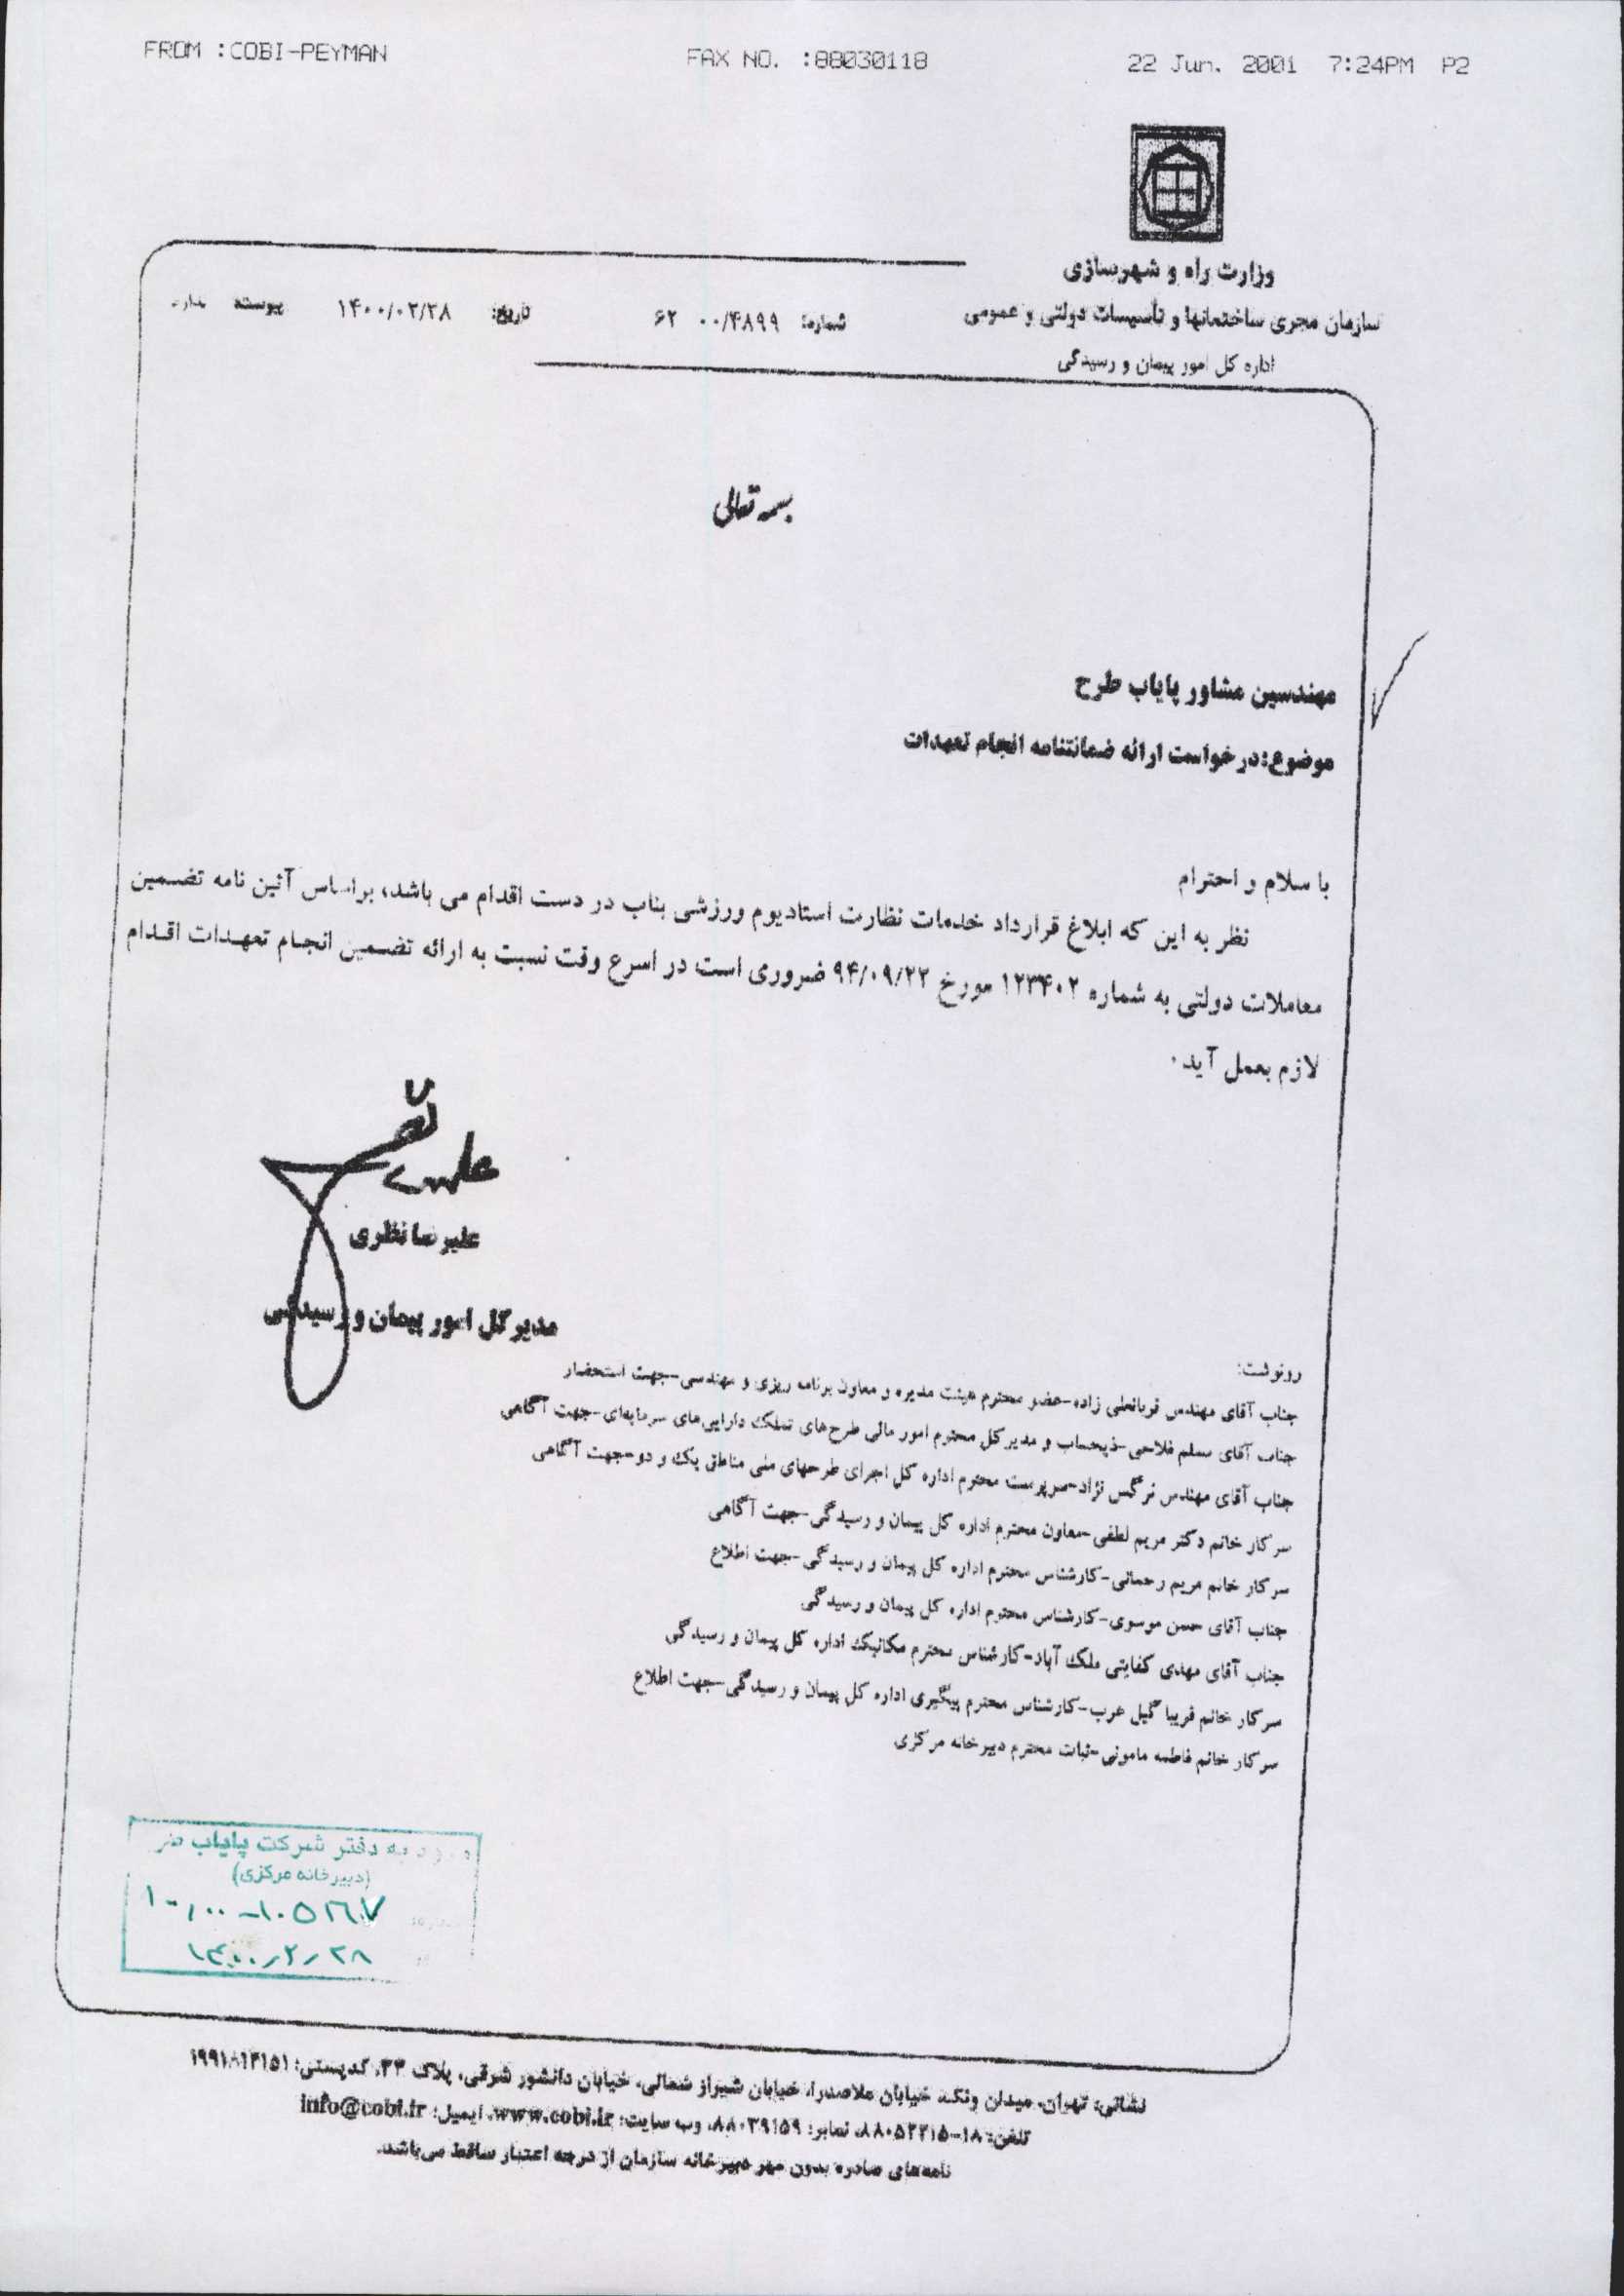 FROM :COBI-PEYMAN FAX NO. :88030118 22 Jun. 2001 7:24PM P2
وزارت راه و شهرسازی
سازمان مجری ساختمانها و تأسیسات دولتی و عمومی
اداره کل امور پیمان و رسیدگی
شماره: ۰۰/۴۸۹۹ ۶۲ تاریخ: ۱۴۰۰/۰۲/۲۸ پیوست: ندارد
بسمه تعالی
مهندسین مشاور پایاب طرح
موضوع:درخواست ارائه ضمانتنامه انجام تعهدات
با سلام و احترام
نظر به این که ابلاغ قرارداد خدمات نظارت استادیوم ورزشی بناب در دست اقدام می باشد، براساس آئین نامه تضمین
معاملات دولتی به شماره ۱۲۳۴۰۲ مورخ ۹۴/۰۹/۲۲ ضروری است در اسرع وقت نسبت به ارائه تضمین انجام تعهدات اقدام
لازم بعمل آید.
علیرضا نظری
مدیر کل امور پیمان و رسیدگی
رونوشت:
جناب آقای مهندس قربانعلی زاده-عضو محترم هیئت مدیره و معاون برنامه ریزی و مهندسی-جهت استحضار
جناب آقای مسلم فلاحی-ذیحساب و مدیرکل محترم امور مالی طرح‌های تملک دارایی‌های سرمایه‌ای-جهت آگاهی
جناب آقای مهندس نرگس نژاد-سرپرست محترم اداره کل اجرای طرحهای ملی مناطق یک و دو-جهت آگاهی
سرکار خانم دکتر مریم لطفی-معاون محترم اداره کل پیمان و رسیدگی-جهت آگاهی
سرکار خانم مریم رحمانی-کارشناس محترم اداره کل پیمان و رسیدگی-جهت اطلاع
جناب آقای حسن موسوی-کارشناس محترم اداره کل پیمان و رسیدگی
جناب آقای مهدی کفایتی ملک آباد-کارشناس محترم مکانیک اداره کل پیمان و رسیدگی
سرکار خانم فریبا گیل عرب-کارشناس محترم پیگیری اداره کل پیمان و رسیدگی-جهت اطلاع
سرکار خانم فاطمه مامونی-ثبات محترم دبیرخانه مرکزی
به دفتر شرکت پایاب
(دبیرخانه مرکزی)
۱۴۰۰/۲/۲۸
نشانی: تهران، میدان ونک، خیابان ملاصدرا، خیابان شیراز شمالی، خیابان دانشور شرقی، پلاک ۲۳، کدپستی: ۱۹۹۱۸۱۳۱۵۱
تلفن: ۱۸-۸۸۰۵۲۲۱۵، نمابر: ۸۸۰۳۹۱۵۹، وب سایت: www.cobi.ir، ایمیل: info@cobi.ir
نامه‌های صادره بدون مهر دبیرخانه سازمان از درجه اعتبار ساقط می‌باشد.